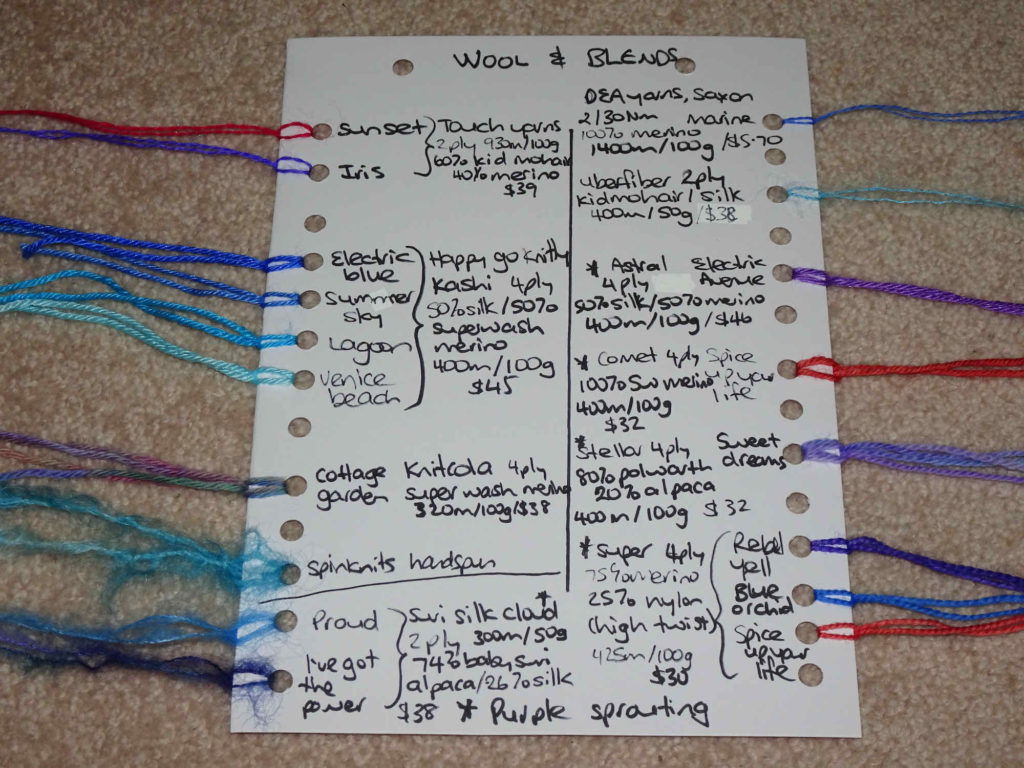 WOOL & BLENDS
Sunset
Iris
Touch yarns
2 ply 930m/100g
60% kid mohair
40% merino
$39
Electric
blue
Summer
sky
Lagoon
Venice
beach
Happy go knitty
Kashi 4ply
50% silk/50%
superwash
merino
400m/100g
$45
Cottage
garden
Knitcola 4ply
super wash merino
320m/100g/$38
spinknits handspun
Proud
I've got
the
power
Suri silk cloud *
2 ply 300m/50g
74% baby suri
alpaca/26% silk
$38
DEA yarns, Saxon
2/30Nm marine
100% merino
1400m/100g/$5.70
uberfiber 2ply
kidmohair/silk
400m/50g/$38
* Astral Electric
4ply Avenue
50% silk/50% merino
400m/100g/$40
* Comet 4ply Spice
100% SW merino up your
400m/100g life
$32
* Stellar 4ply Sweet
80% polwarth dreams
20% alpaca
400m/100g $32
* Super 4ply
75% merino
25% nylon
(high twist)
425m/100g
$30
Rebel
yell
Blue
orchid
Spice
up your
life
* Purple sprouting